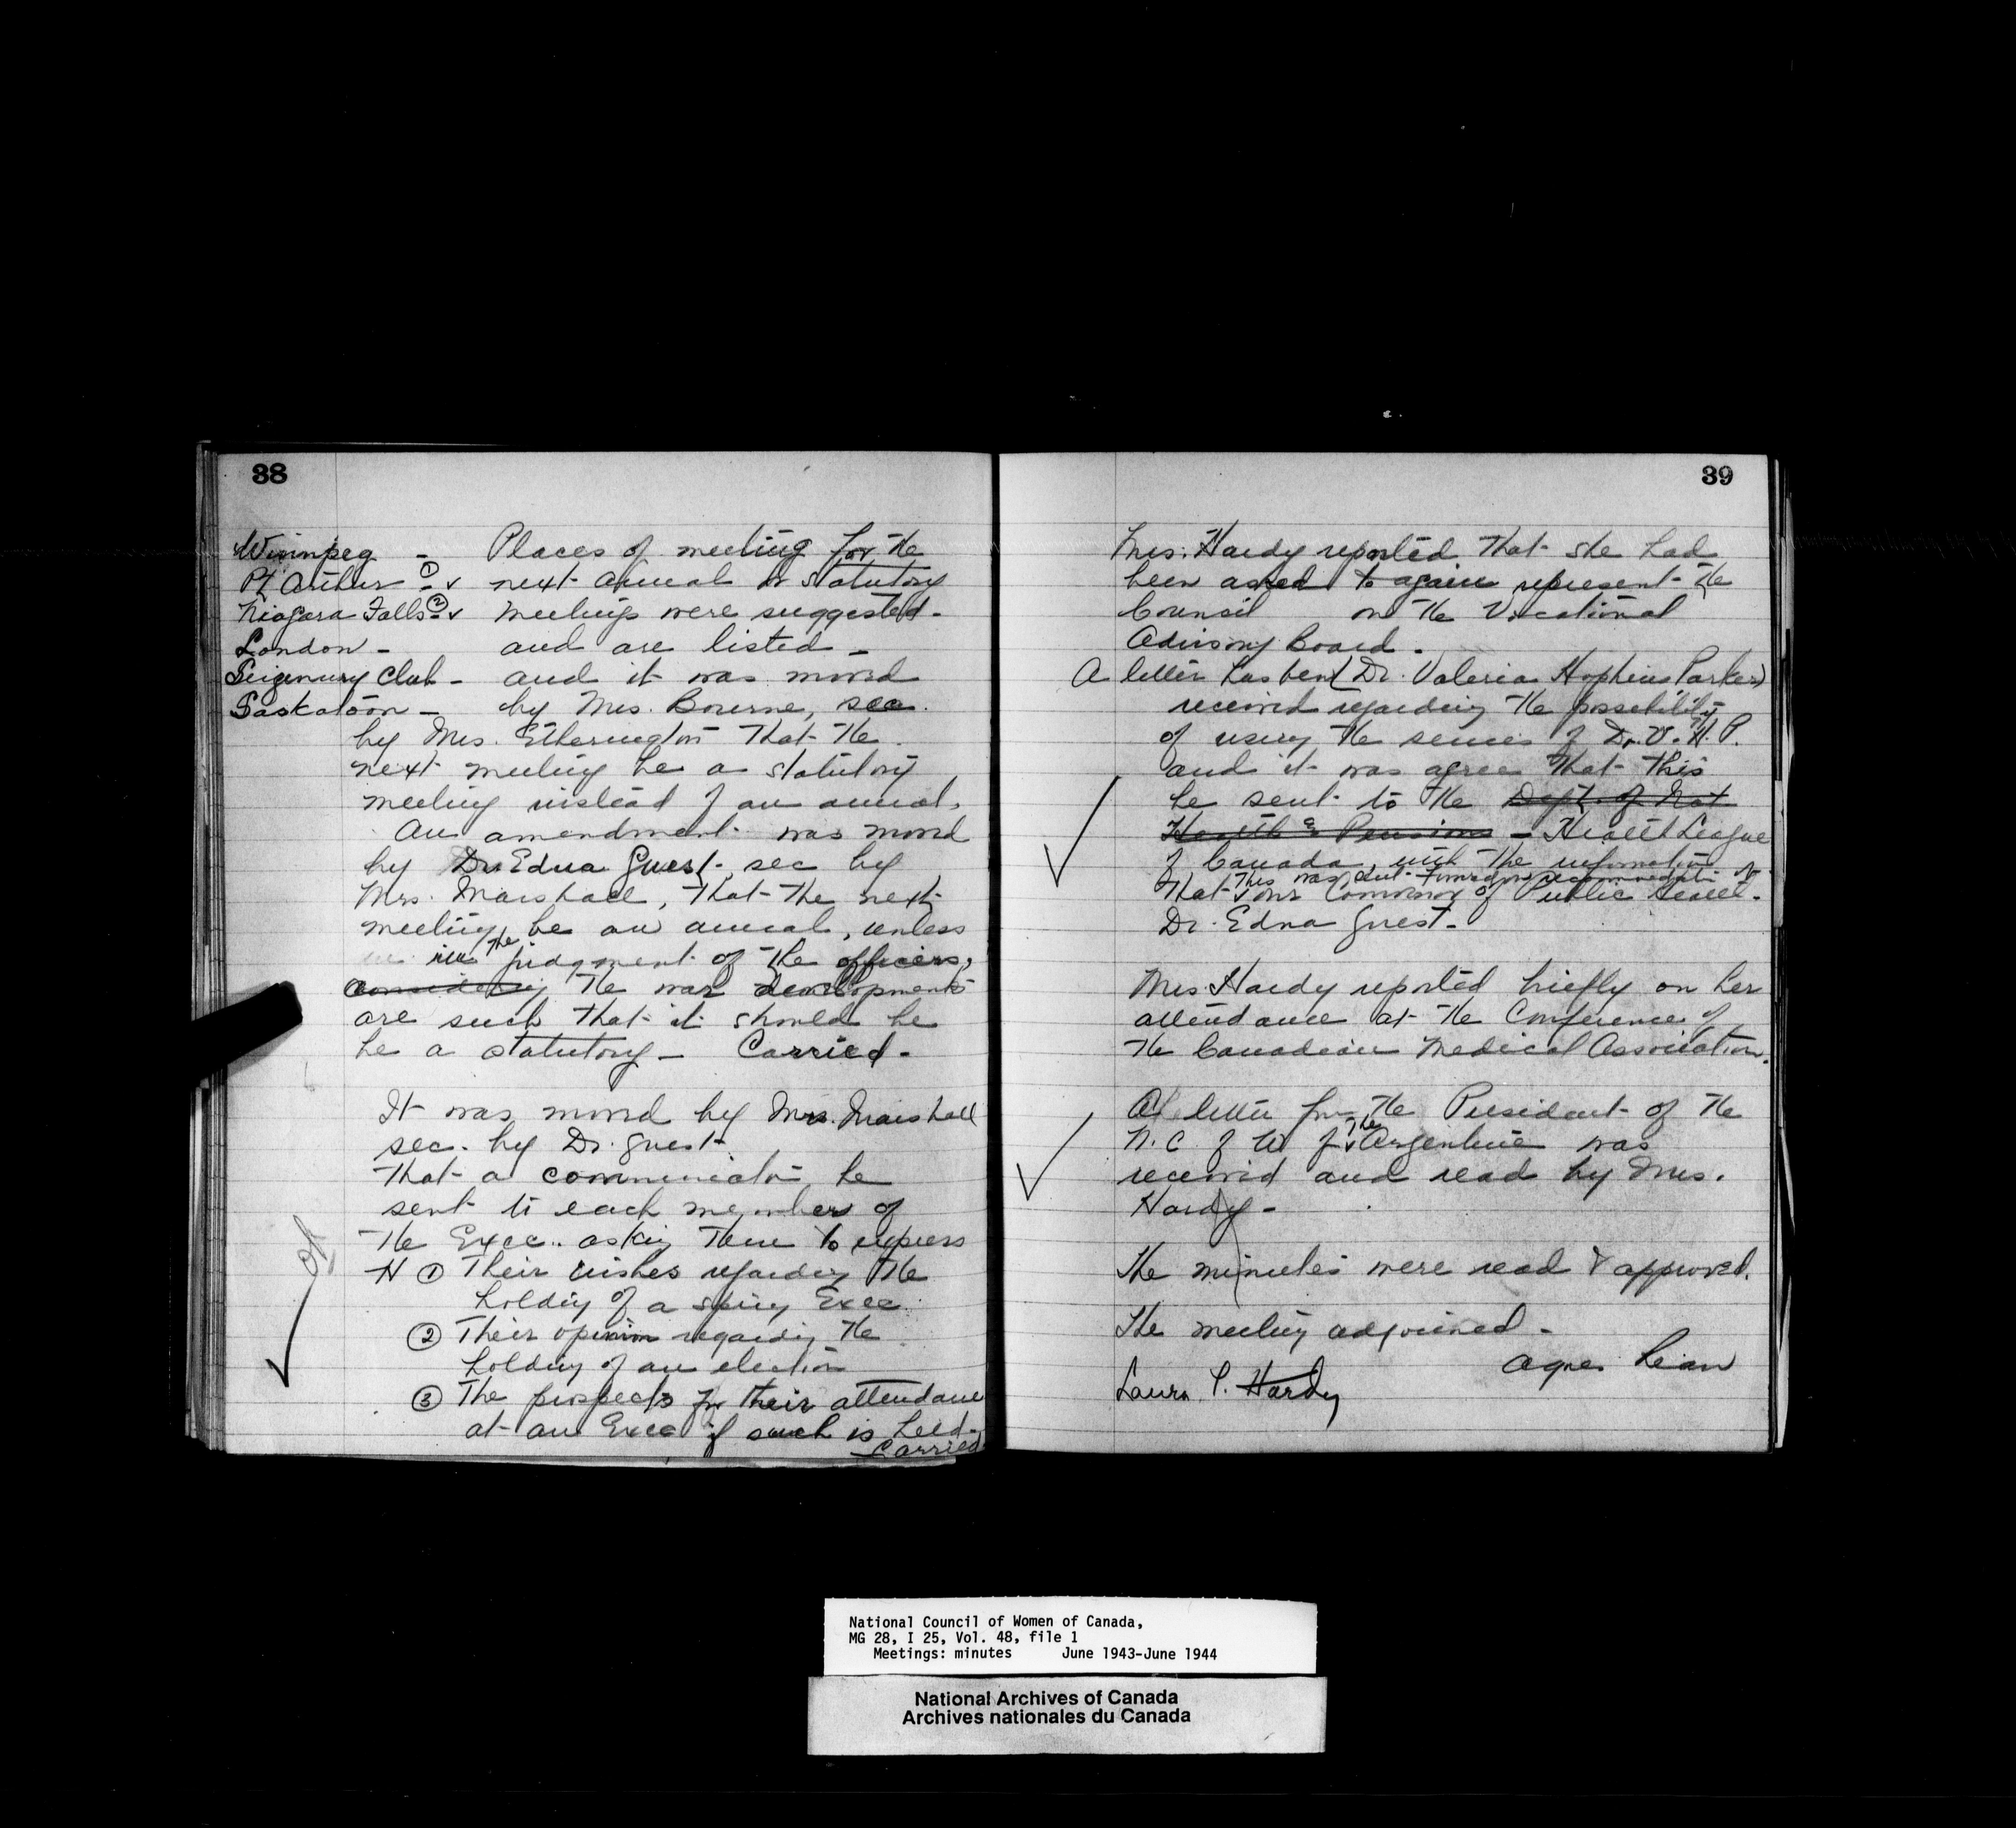 38
Winnipeg - Places of meeting for the
Pt Arthur ① - v next annual or statutory
Niagara Falls ② - v meetings were suggested -
London - and are listed -
Seigniory Club - and it was moved
Saskatoon - by Mrs. Bourne, sec.
by Mrs. Etherington that the
next meeting be a statutory
meeting instead of an annual.
An amendment was moved
by Dr. Edna Guest - sec by
Mrs. Marshall, that the next
meeting be an annual, unless
in the judgment of the officers,
considering the war developments
are such that it should be
be a statutory - Carried -
It was moved by Mrs. Marshall
sec. by Dr. Guest
that a communication be
sent to each member of
the Exec. asking them to express
① Their wishes regarding the
holding of a spring Exec.
② Their opinion regarding the
holding of an election
③ The prospects for their attendance
at an Exec if such is held.
Carried
39
Mrs. Hardy reported that she had
been asked to again represent the
Council on the Vocational
Advisory Board.
A letter has been (Dr. Valeria Hopkins Parker)
received regarding the possibility
of using the services of Dr. V. H. P.
and it was agree that this
be sent to the Dept. of Nat
Health & Pensions - Health League
of Canada, with the information
This was sent recommendation of
that our Convenor of Public Health.
Dr. Edna Guest -
Mrs Hardy reported briefly on her
attendance at the Conference of
the Canadian Medical Association.
A letter from the President of the
N.C. of W of the Argentine was
received and read by Mrs.
Hardy -
The minutes were read & approved.
The meeting adjourned -
Agnes
Laura P. Hardy
National Council of Women of Canada,
MG 28, I 25, Vol. 48, file 1
Meetings: minutes June 1943-June 1944
National Archives of Canada
Archives nationales du Canada